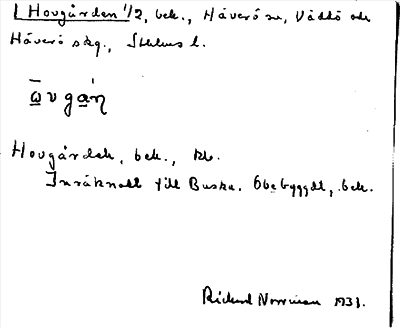 Hovgården 1/2, bek., Häverö sn, Väddö och
Häverö skg., Sthlms l.
ω̄vgán
Hovgårdek, bek., Kb.
Inräknatt till Buska. Obebyggdt, bek.
Rickard Norrman 1933.